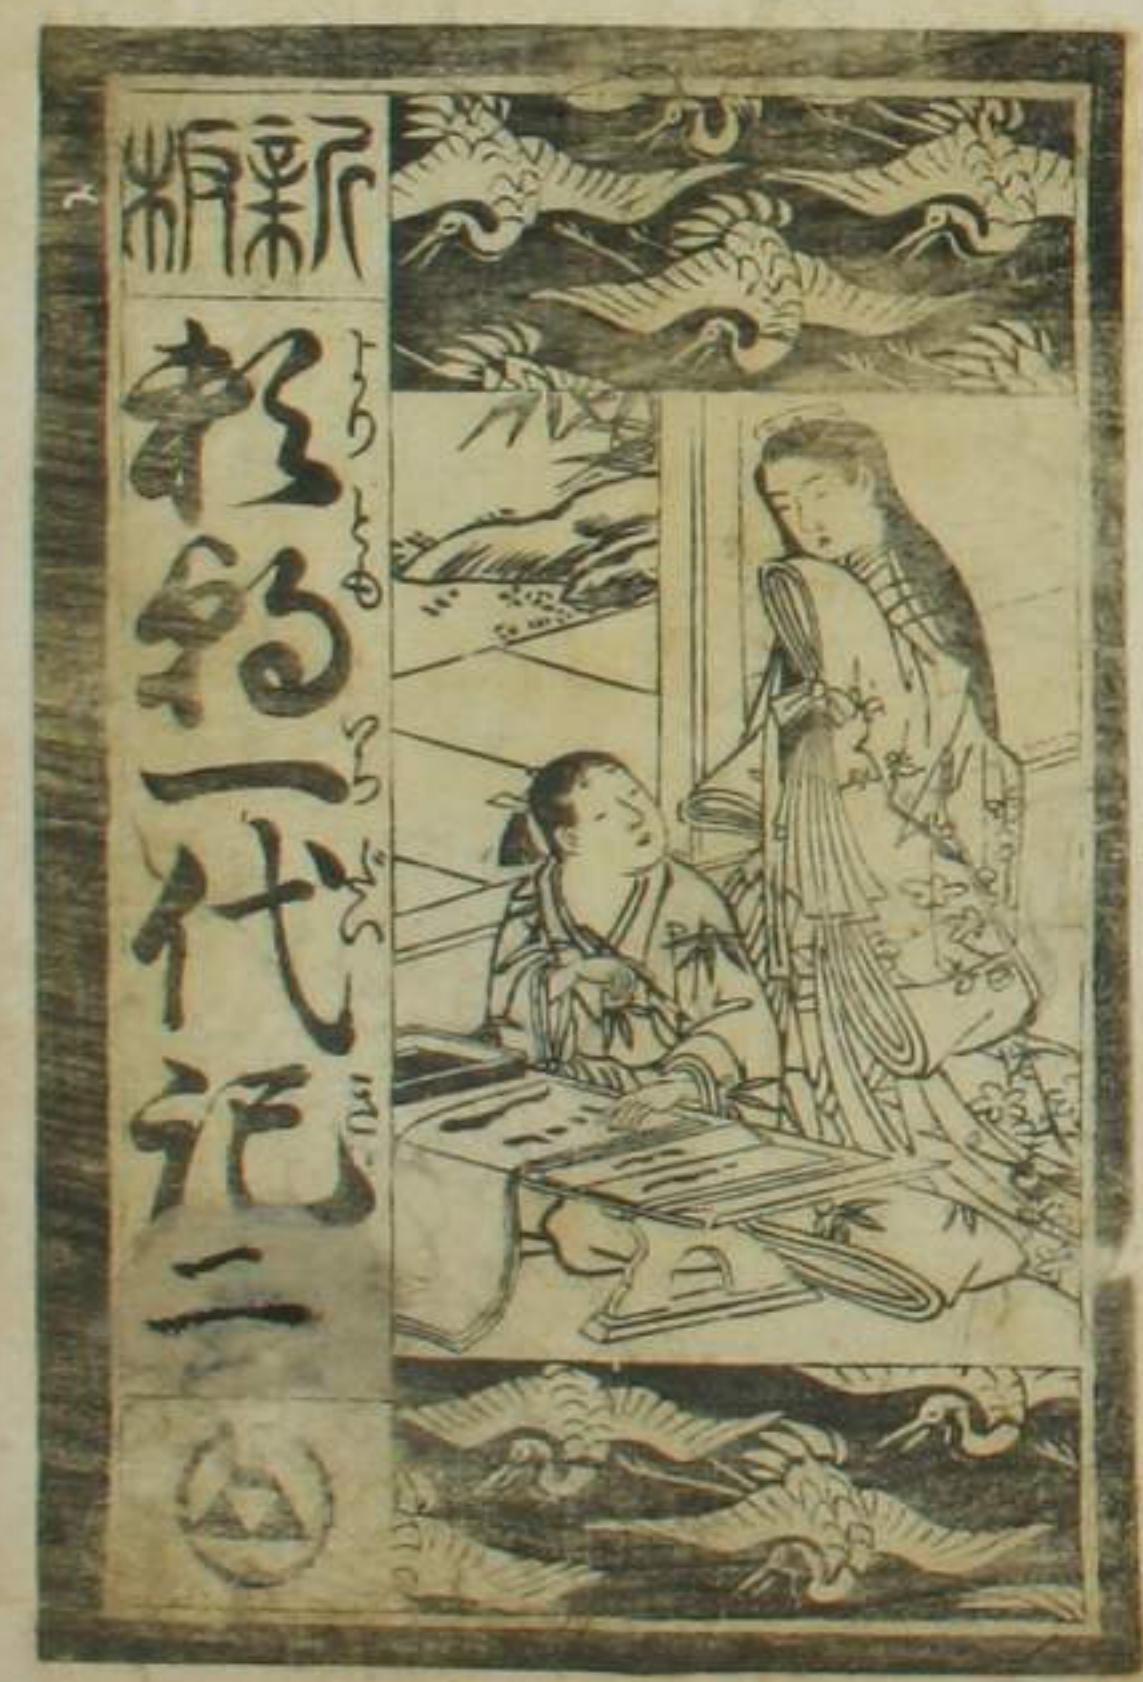 新板
頼朝一代記
よりとも いちだいき
二